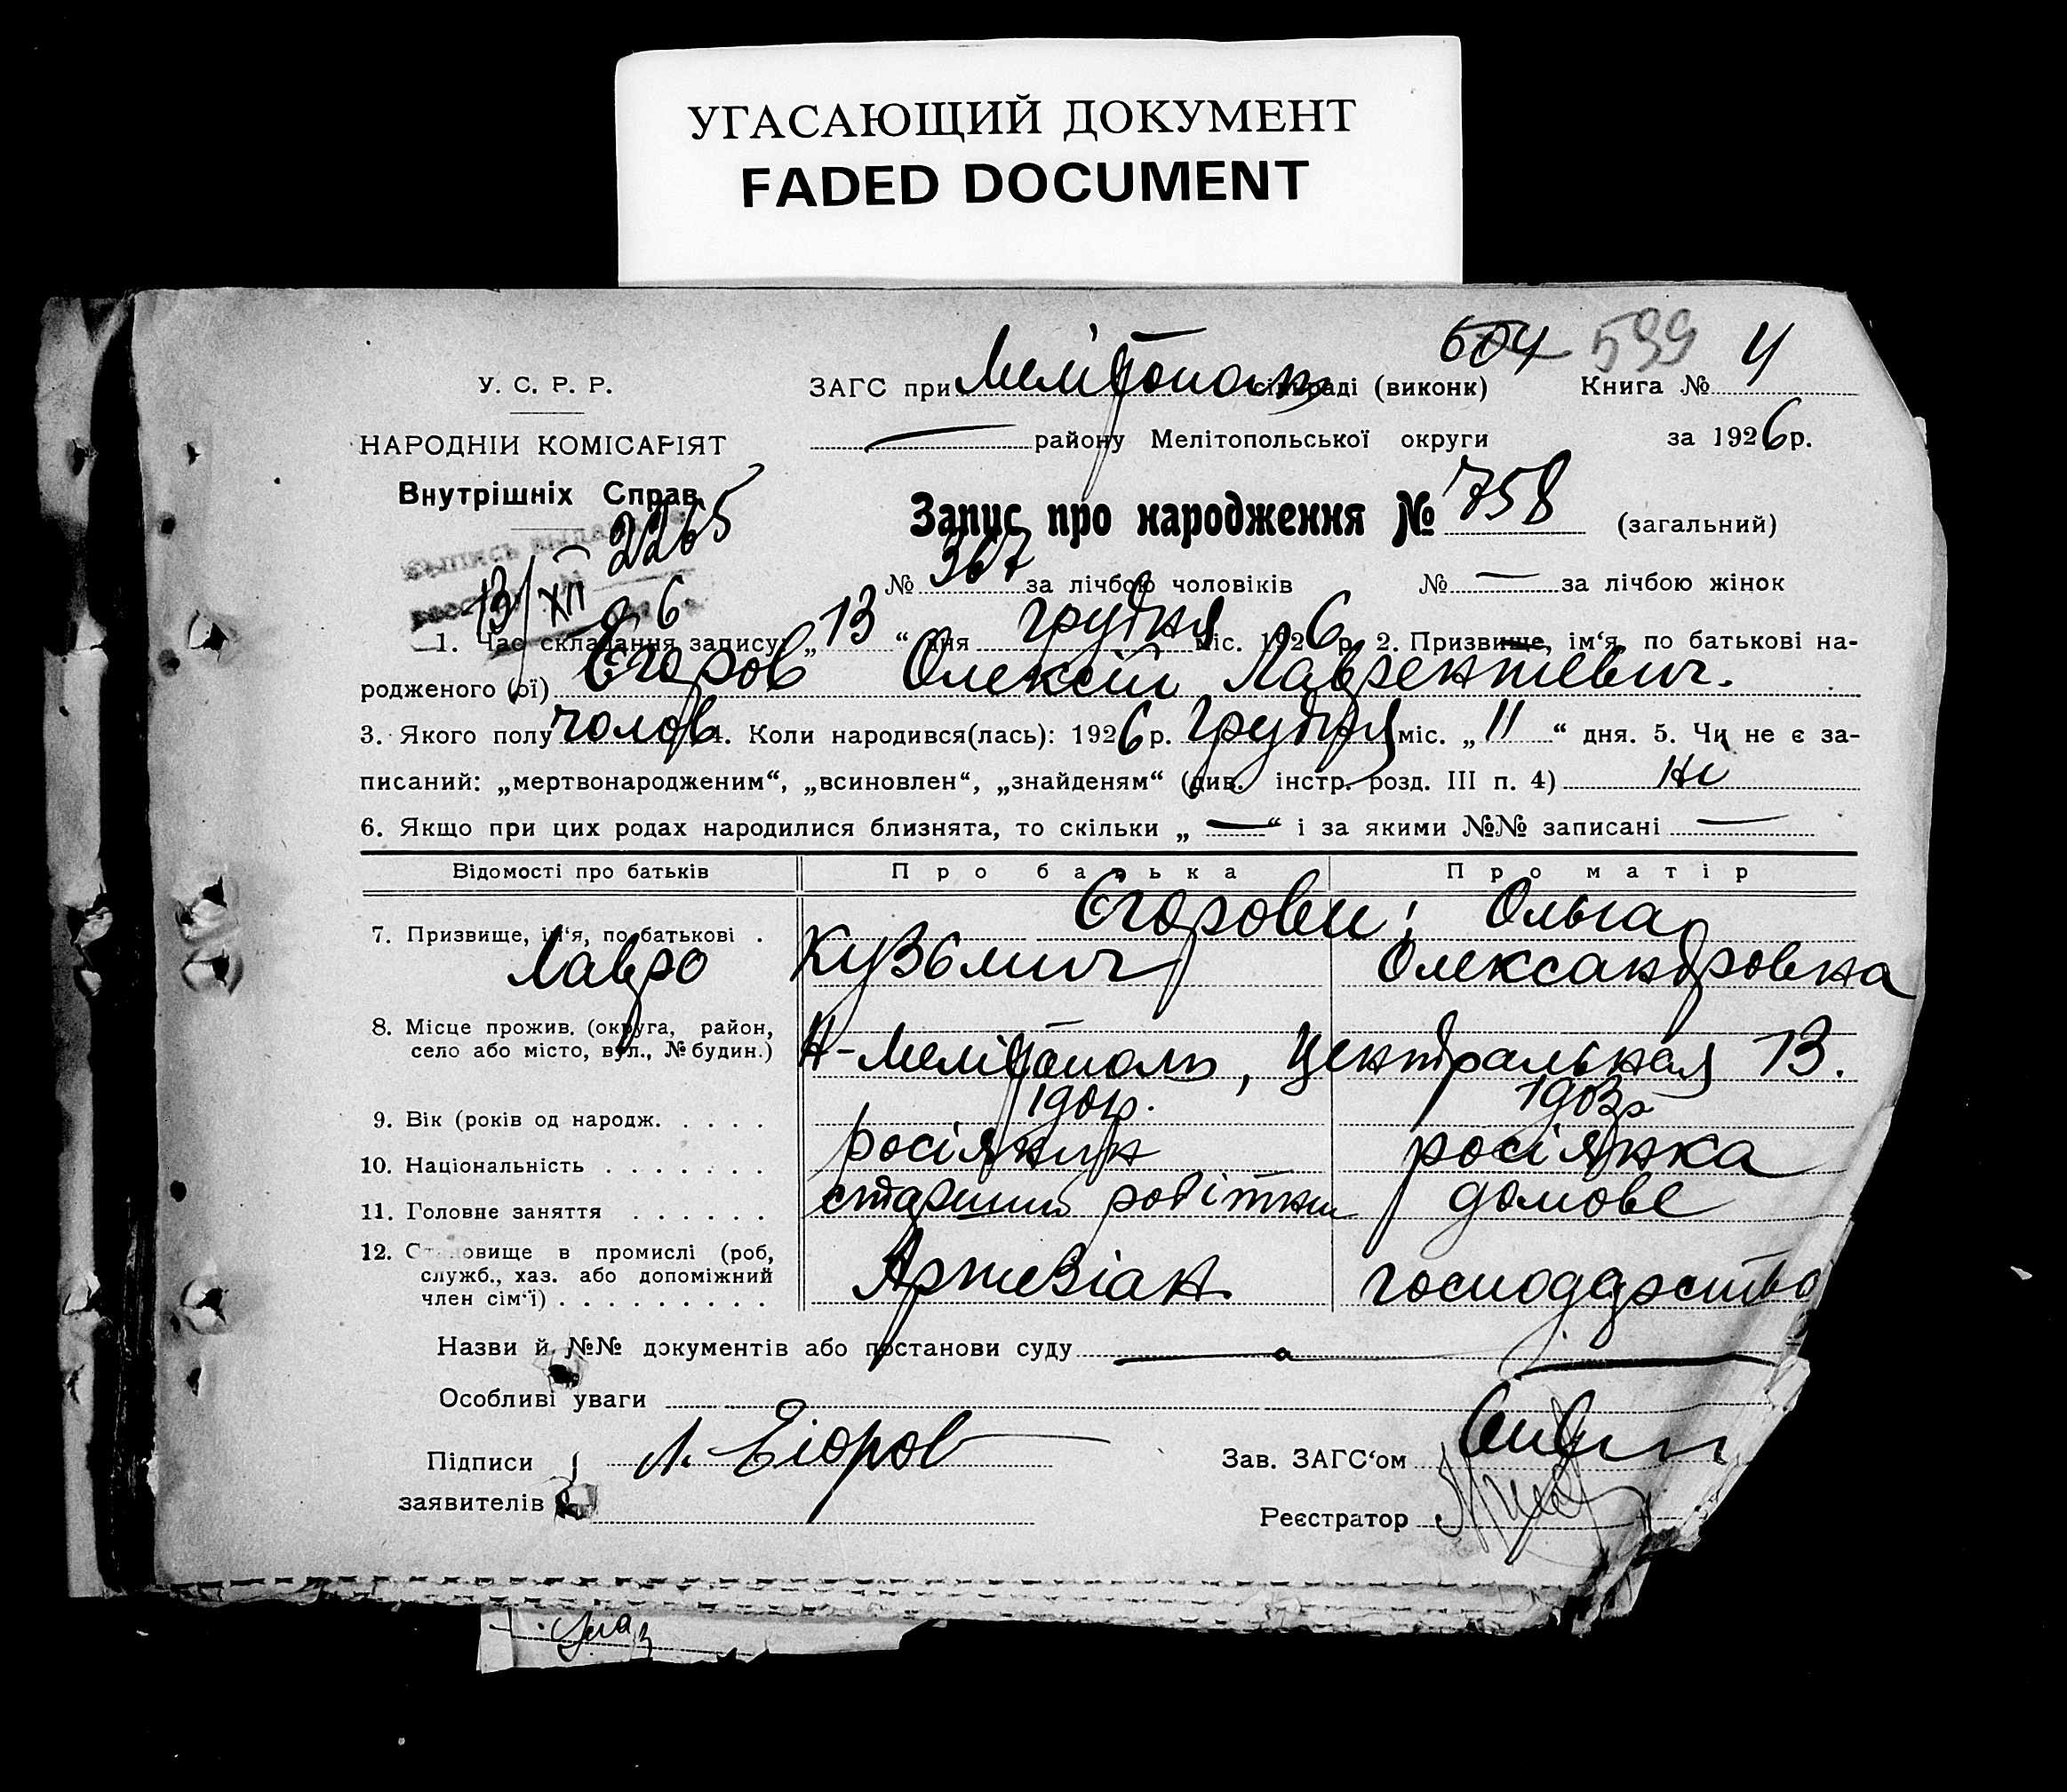 УГАСАЮЩИЙ ДОКУМЕНТ
FADED DOCUMENT
604 599
У. С. Р. Р.
ЗАГС при Мелітополь сільраді (виконк) Книга № 4
НАРОДНІЙ КОМІСАРІЯТ
району Мелітопольської округи за 1926 р.
Внутрішніх Справ
2265
Запис про народження № 758 (загальний)
13/XII 26
№ 367 за лічбою чоловіків № — за лічбою жінок
1. Час складання запису: „13“ дня грудня міс. 1926 р. 2. Призвище, ім‘я, по батькові на-
родженого (ої) Єгоров Олексій Лаврентіевич.
3. Якого полу чолов 4. Коли народився(лась): 1926 р. грудня міс. „11“ дня. 5. Чи не є за-
писаний: „мертвонародженим“, „всиновлен“, „знайденям“ (див. інстр. розд. III п. 4) ні
6. Якщо при цих родах народилися близнята, то скільки „ — “ і за якими №№ записані —
Відомості про батьків Про батька Про матір
7. Призвище, ім‘я, по батькові . Єгорови: Ольга
Лавро Кузьмич Олександровна
8. Місце прожив. (округа, район,
село або місто, вул., № будин.) Н-Мелітополь, Центральная 13.
9. Вік (років од народж. . . . . 1901р. 1903р
10. Національність . . . . . . . росіянин росіянка
11. Головне заняття . . . . . . старший робітник домове
12. Становище в промислі (роб,
служб., хаз. або допоміжний
член сім‘ї) . . . . . . . . . Артезіан господарство
Назви й №№ документів або постанови суду —
Особливі уваги
Підписи Л. Єгоров Зав. ЗАГС‘ом
заявителів
Реєстратор